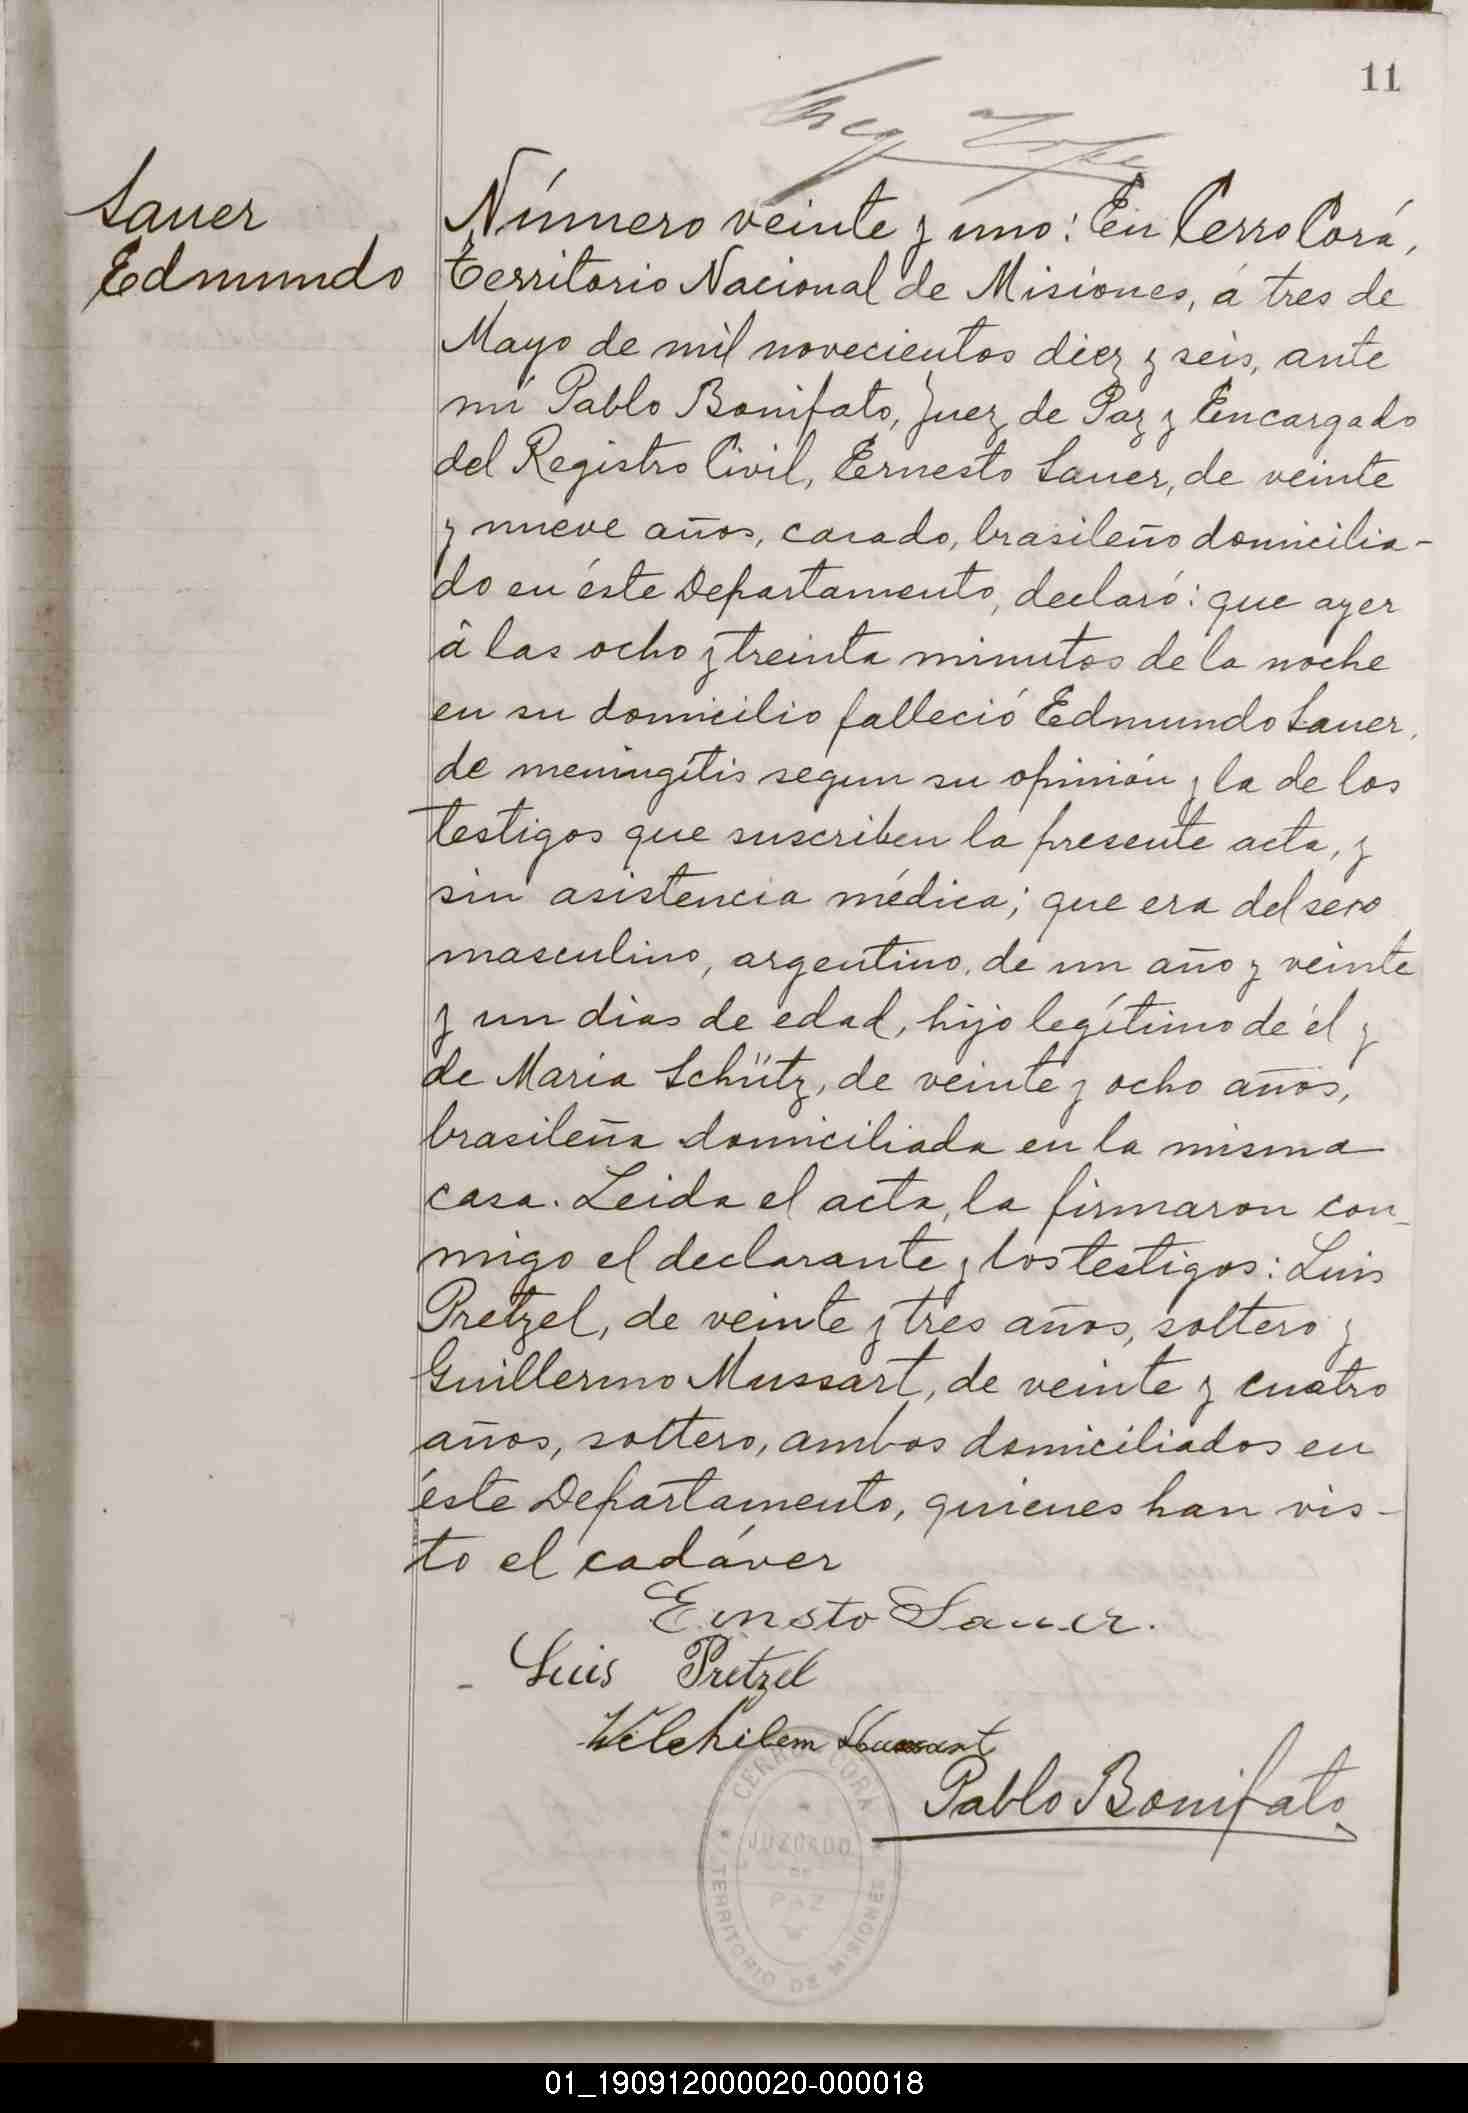 11
Sauer
Edmundo
Número veinte y uno: En Cerro Corá,
territorio Nacional de Misiones, á tres de
Mayo de mil novecientos diez y seis, ante
mí Pablo Bonifato, Juez de Paz y Encargado
del Registro Civil, Ernesto Sauer, de veinte
y nueve años, casado, brasileño domicilia-
do en éste Departamento, declaró: que ayer
á las ocho y treinta minutos de la noche
en su domicilio falleció Edmundo Sauer,
de meningitis segun su opinión y la de los
testigos que suscriben la presente acta, y
sin asistencia médica; que era del sexo
masculino, argentino, de un año y veinte
y un dias de edad, hijo legítimo de él y
de Maria Schütz, de veinte y ocho años,
brasileña domiciliada en la misma
casa. Leida el acta, la firmaron con-
migo el declarante y los testigos: Luis
Pretzel, de veinte y tres años, soltero y
Guillermo Mussart, de veinte y cuatro
años, soltero, ambos domiciliados en
éste Departamento, quienes han vis-
to el cadáver
Ernsto Sauer.
Luis Pretzel
Wilchilem
Pablo Bonifato
CERRO CORA
JUZGADO
DE
PAZ
TERRITORIO DE MISIONES
01_190912000020-000018